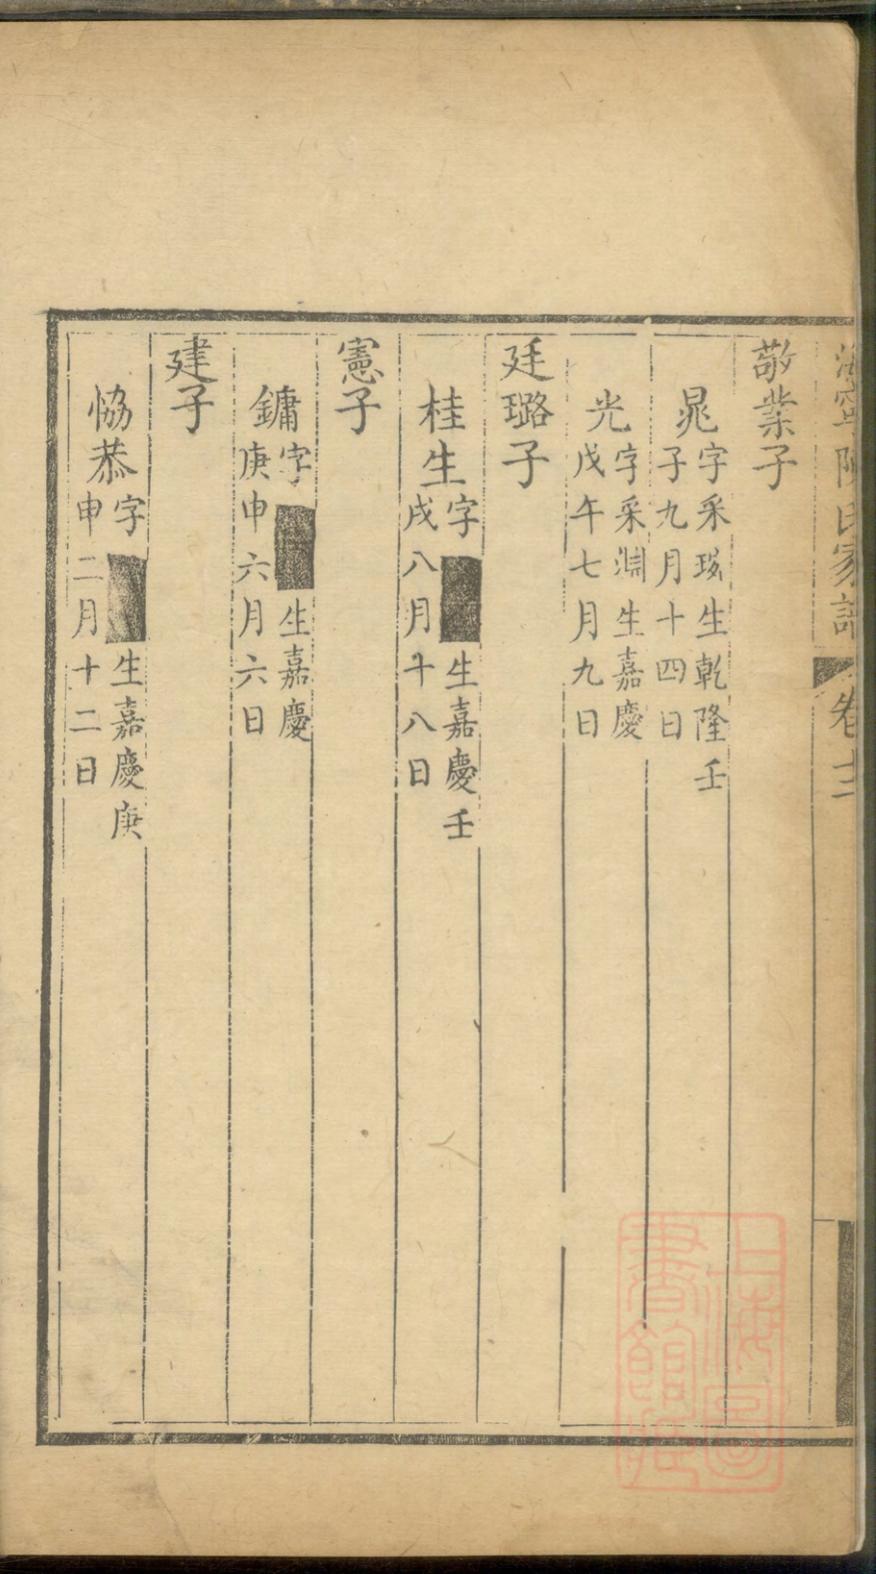 海寧陳氏家譜 卷十二
敬業子
晁 字采琰生乾隆壬
子九月十四日
光 字采淵生嘉慶
戊午七月九日
廷璐子
桂生 字 生嘉慶壬
戌八月十八日
憲子
鏞 字 生嘉慶
庚申六月六日
建子
恊恭 字 生嘉慶庚
申二月十二日
上海圖
書館藏